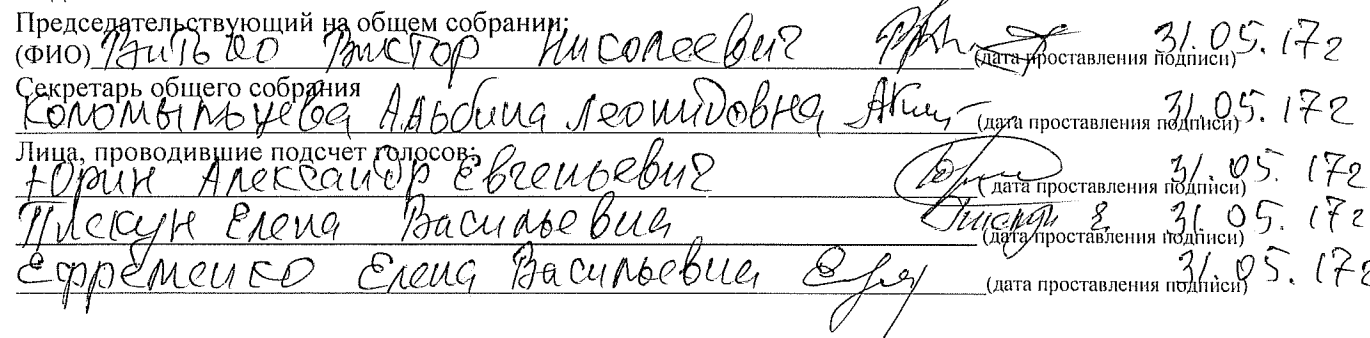 Председательствующий на общем собрании:
(ФИО) Витько Виктор Николаевич (дата проставления подписи) 31.05.17г
Секретарь общего собрания
Коломыльцева Альбина Леонидовна (дата проставления подписи) 31.05.17г
Лица, проводившие подсчет голосов:
Юрин Александр Евгеньевич ( дата проставления подписи) 31.05.17г
Плескун Елена Васильевна (дата проставления подписи) 31.05.17г
Ефременко Елена Васильевна (дата проставления подписи) 31.05.17г